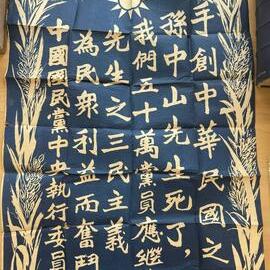 手創中華民國之
孫中山先生死了，
我們五十萬黨員應繼
先生之三民主義
為民衆利益而奮鬥
中國國民黨中央執行委員